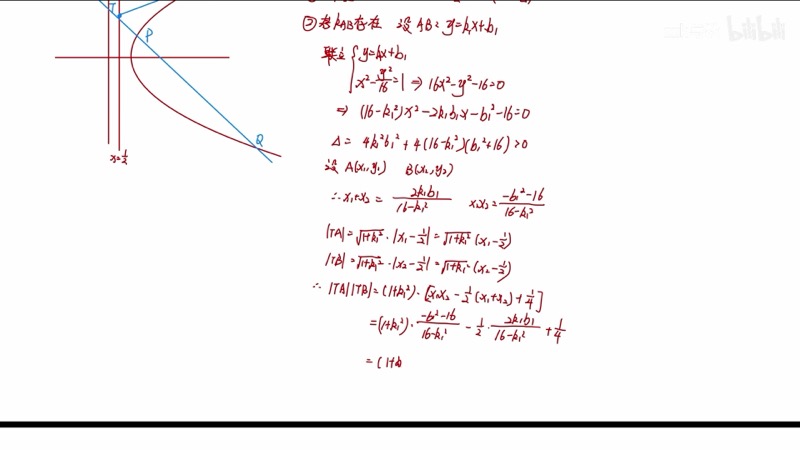 ② 若kAB存在 设AB：y=k₁x+b₁
联立{y=k₁x+b₁
x²-y²/16=1 ⇒ 16x²-y²-16=0
⇒ (16-k₁²)x²-2k₁b₁x-b₁²-16=0
Δ= 4k₁²b₁²+4(16-k₁²)(b₁²+16)>0
设 A(x₁,y₁) B(x₂,y₂)
∴x₁+x₂= 2k₁b₁/(16-k₁²) x₁x₂=(-b₁²-16)/(16-k₁²)
|TA|=√(1+k₁²)·|x₁-1/2|=√(1+k₁²)(x₁-1/2)
|TB|=√(1+k₁²)·|x₂-1/2|=√(1+k₁²)(x₂-1/2)
∴ |TA||TB|=(1+k₁²)·[x₁x₂-1/2(x₁+x₂)+1/4]
=(1+k₁²)·(-b²-16)/(16-k₁²)-1/2·2k₁b₁/(16-k₁²)+1/4
=(1+k
T
P
Q
x=1/2
bilibili